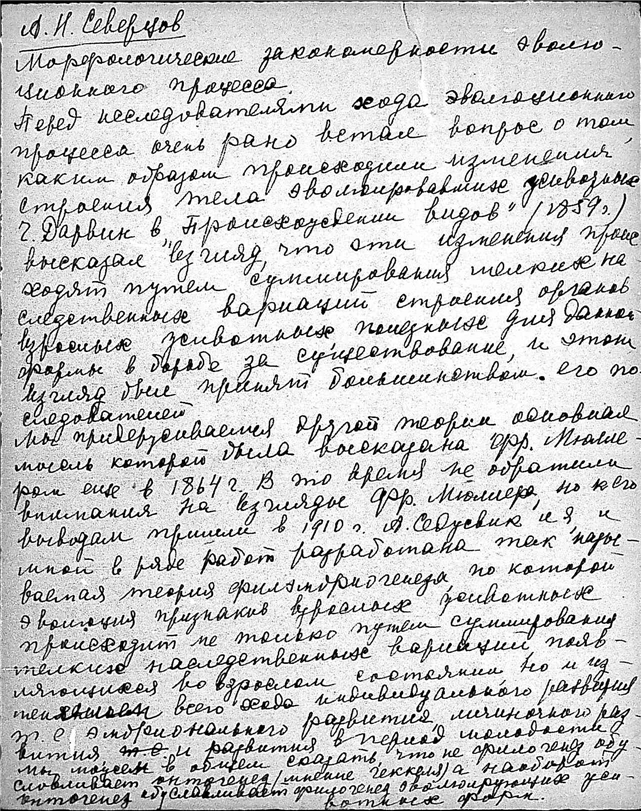 А. Н. Северцов
Морфологические закономерности эволю-
ционного процесса.
Перед исследователями хода эволюционного
процесса очень рано встал вопрос о том
каким образом происходили изменения
строения тела эволюировавших животных
Ч. Дарвин в "Происхождении видов" (1859 г.)
высказал взгляд, что эти изменения проис
ходят путем суммирования мелких на
следственных вариаций строения органов
взрослых животных полезных для данной
формы в борьбе за существование, и этот
взгляд был принят большинством его по
следователей
Мы придерживаемся другой теории основная
мысль которой была высказана Фр. Мюлле
ром еще в 1864 г. В то время не обратили
внимания на взгляды Фр. Мюллера, но к его
выводам пришли в 1910 г. А. Седжвик и я, и
мной в ряде работ разработана так назы-
ваемая теория филэмбриогенеза, по которой
эволюция признаков взрослых животных
происходит не только путем суммирования
мелких наследственных вариаций, появ-
ляющихся во взрослом состоянии, но и из-
менением всего хода индивидуального развития
т. е. эмбрионального развития, личиночного раз
вития и развития в период молодости
мы можем в общем сказать, что не филогенез обу
словливает онтогенез (мнение Геккеля) а наоборот
онтогенез обуславливает филогенез эволюирующих жи-
вотных форм.